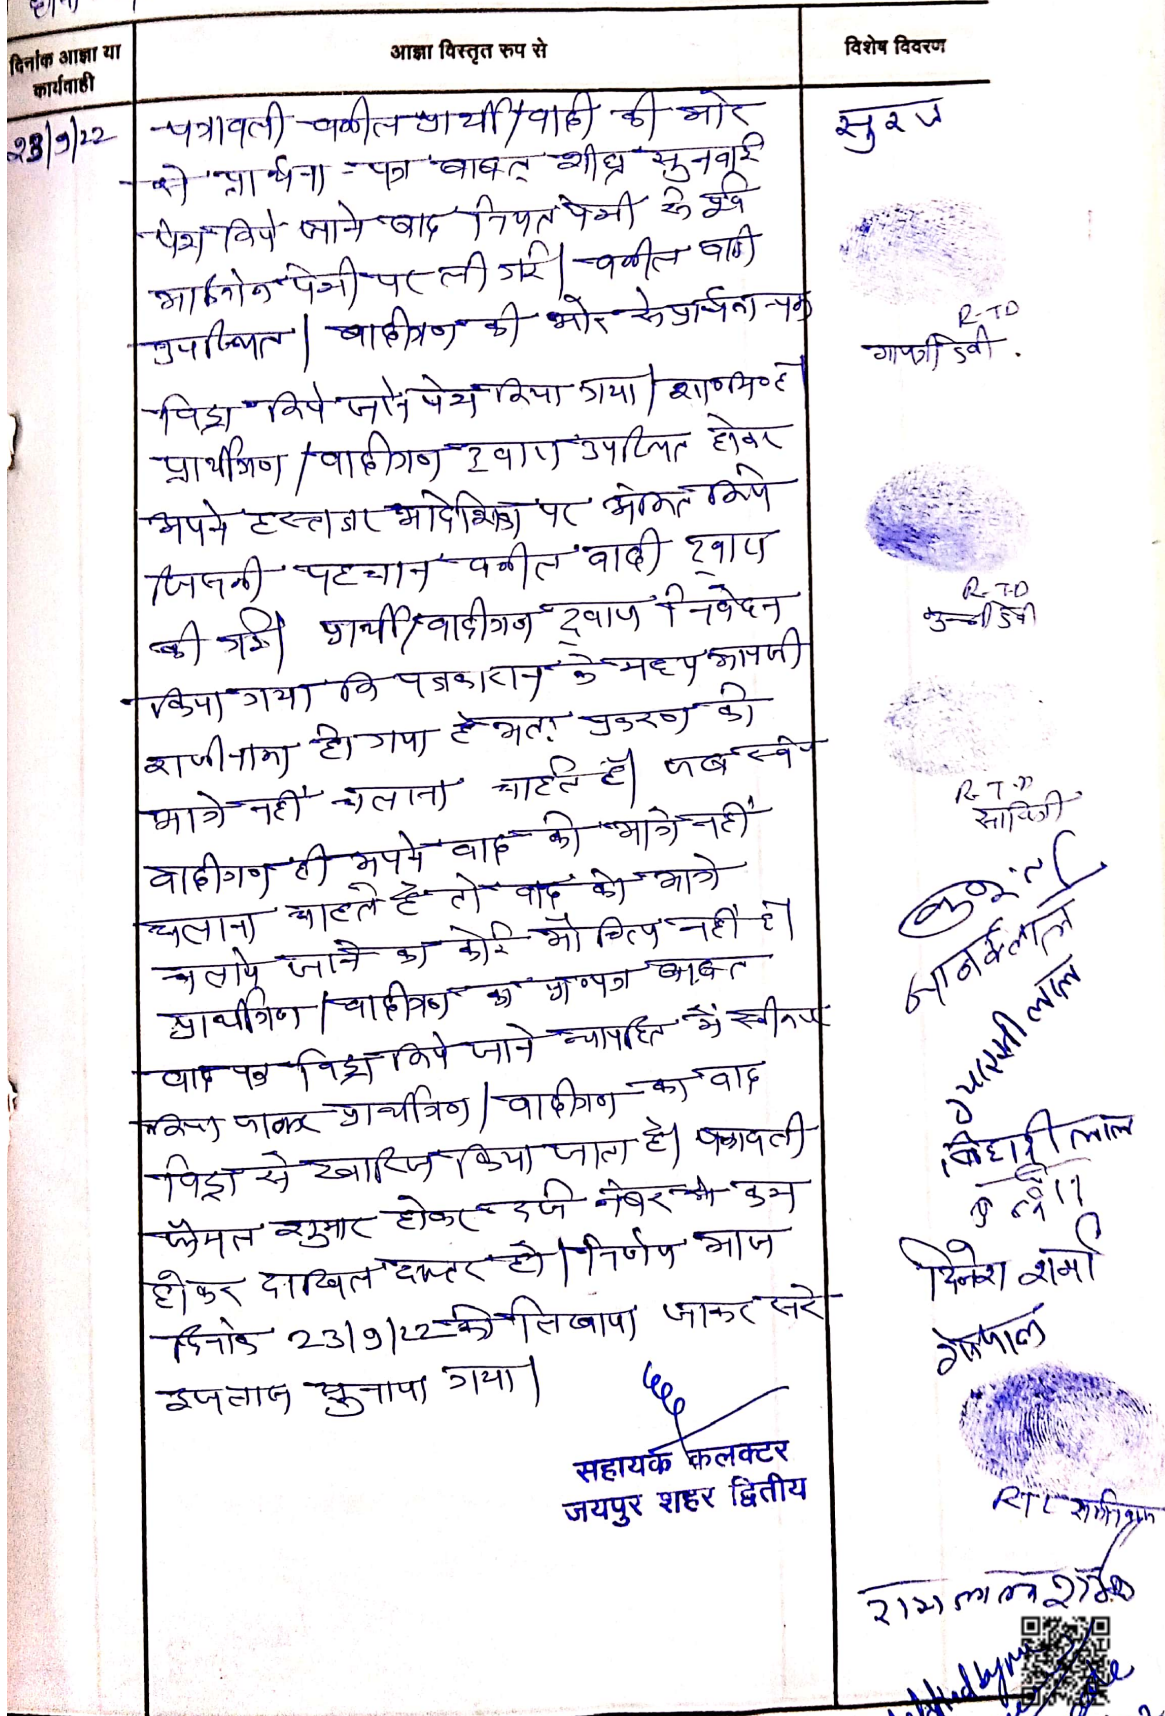 दिनांक आज्ञा या
कार्यवाही
आज्ञा विस्तृत रुप से
विशेष विवरण
23/9/22
पत्रावली वकील प्रार्थी/वादी की ओर
से प्रार्थना पत्र बाबत् शीघ्र सुनवाई
पेश किये जाने बाद नियत पेशी से पूर्व
आज पेशी पर ली गई। वकील वादी
उपस्थित। वादीगण की ओर से प्रार्थना पत्र
विड्रा किये जाने पेश किया गया।
प्रार्थीगण/वादीगण द्वारा उपस्थित होकर
अपने हस्ताक्षर आदेशिका पर अंकित किये
जिसकी पहचान वकील वादी द्वारा
की गई। प्रार्थी/वादीगण द्वारा निवेदन
किया गया कि पक्षकारान के मध्य आपसी
राजीनामा हो गया है अतः प्रकरण को
आगे नहीं चलाना चाहते हैं। जब स्वंय
वादीगण ही अपने वाद को आगे नहीं
चलाना चाहते है तो वाद को आगे
चलाये जाने का कोई औचित्य नहीं है।
प्रार्थीगण/वादीगण का प्रा०पत्र बाबत
वाद पत्र विड्रा किये जाने न्यायहित में स्वीकार
किया जाकर प्रार्थीगण/वादीगण का वाद
विड्रा से खारिज किया जाता है। पत्रावली
फैसल शुमार होकर दर्ज नंबर से कम
होकर दाखिल दफ्तर हो। निर्णय आज
दिनांक 23/9/22 को लिखाया जाकर सरे
इजलास सुनाया गया।
सहायक कलक्टर
जयपुर शहर द्वितीय
सुरज
R-TD
गायत्री देवी.
R-T-D
मुन्नी देवी
R-T-D
सावित्री
जानकीलाल
बिहारी लाल
दिनेश शर्मा
गोपाल
RTI